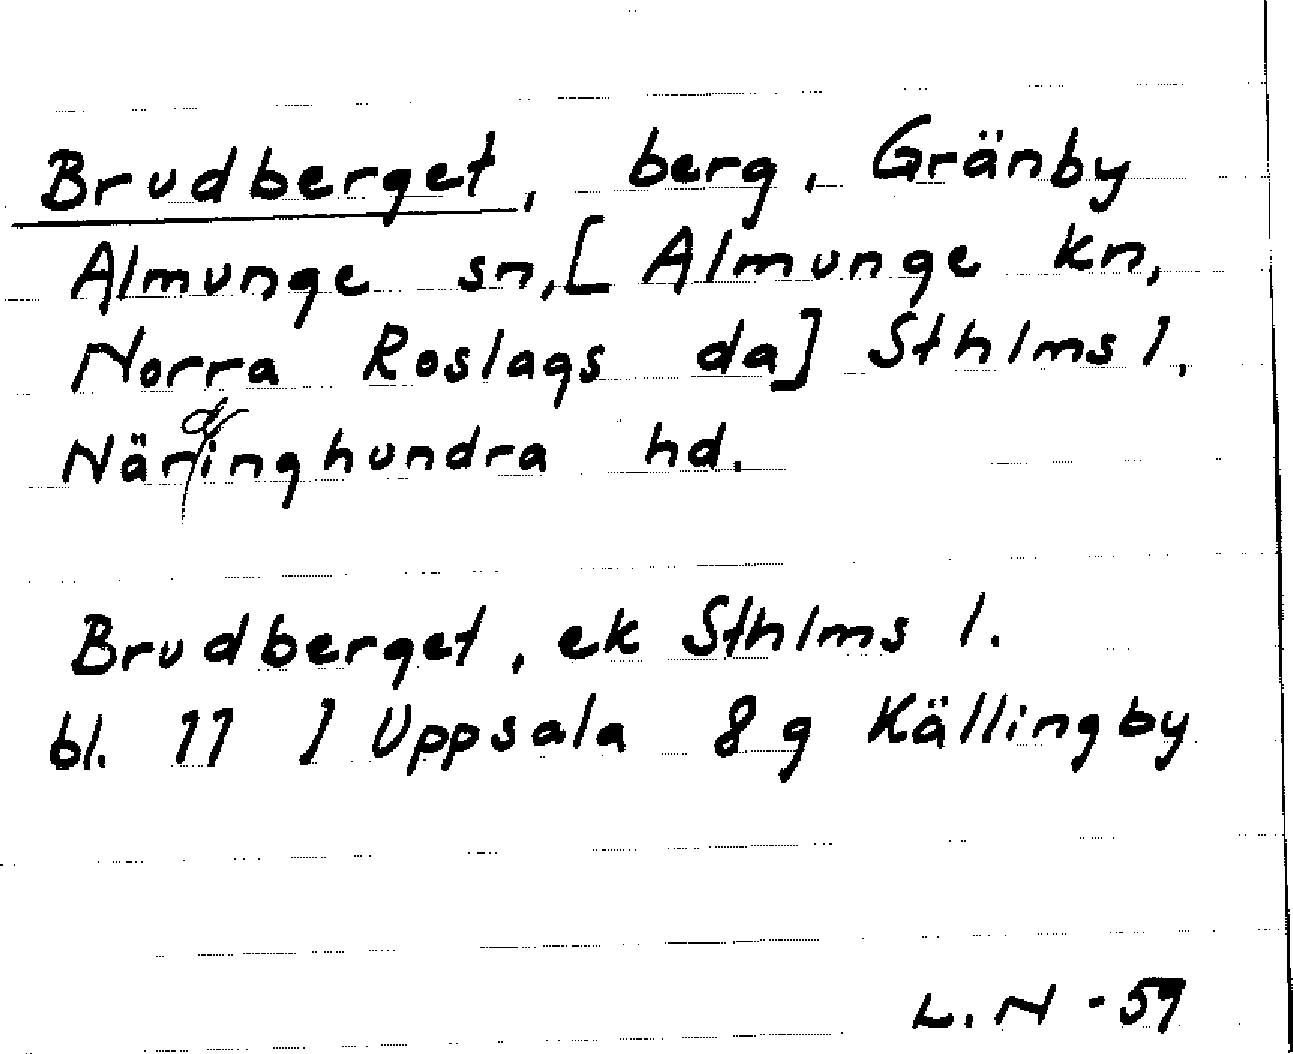 Brudberget, berg, Gränby
Almunge sn, [Almunge kn,
Norra Roslags da] Sthlms l.
Närdinghundra hd.
Brudberget, ek Sthlms l.
bl. 11 I Uppsala 8g Källingby
L. N - 59